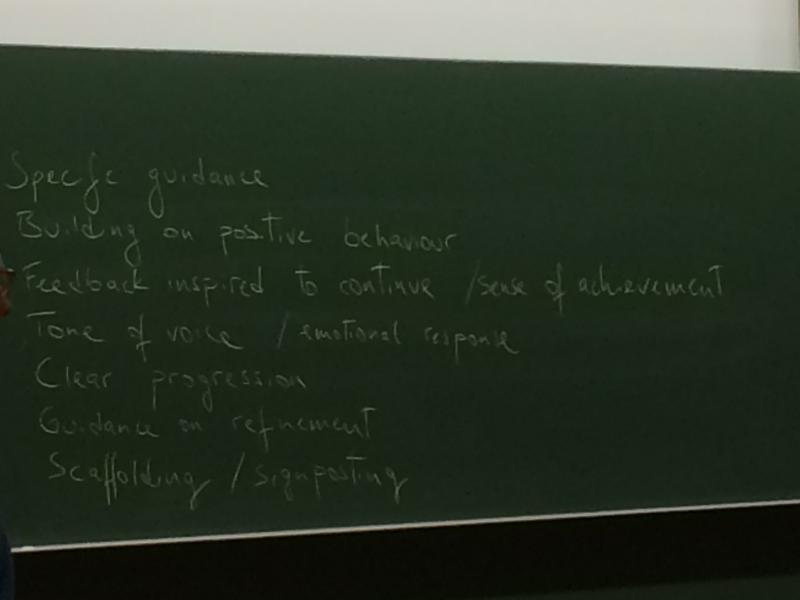 Specific guidance
Building on positive behaviour
Feedback inspired to continue / sense of achievement
Tone of voice / emotional response
Clear progression
Guidance on refinement
Scaffolding / signposting